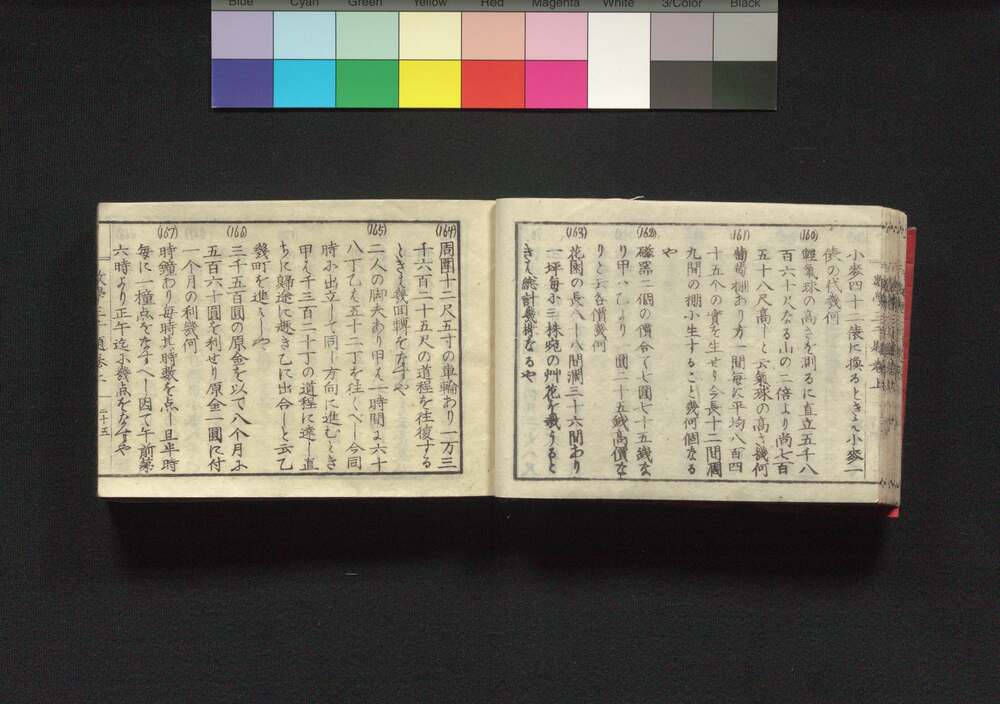 Blue Cyan Green Yellow Red Magenta White 3/Color Black
小麥四十二俵に換るときは小麥一
俵の代幾何
(160)
輕氣球の高さを測るに直立五千八
百六十尺なる山の二倍より尚七百
五十八尺高しと云氣球の高さ幾何
(161)
葡萄棚あり方一間毎に平均八百四
十五个の實を生せり今長十二間濶
九間の棚小生すること幾何個なる
や
(162)
磁器二個の價合て七圓七十五錢な
り甲は乙より一圓二十五錢高價な
りと云各價幾何
(163)
花園の長八十八間濶三十六間あり
一坪毎小三株宛の艸花を栽うると
きは總計幾株なるや
(164)
周圍十二尺五寸の車輪あり一万三
千六百二十五尺の道程を往復する
ときは幾回轉をなすや
(165)
二人の脚夫あり甲は一時間に六十
八丁乙は五十二丁を往くべし今同
時小出立して同し方向に進むとき
甲は千三百二十丁の道程に達し直
ちに歸途に趣き乙に出合しと云乙
幾町を進みしや
(166)
三千五百圓の原金を以て八个月に
五百六十圓を利せり原金一圓に付
一个月の利幾何
(167)
時鐘あり毎時其時數を点し且半時
毎に一撞点をなすへし因て午前第
六時より正午迄小幾点をなすや
二十五